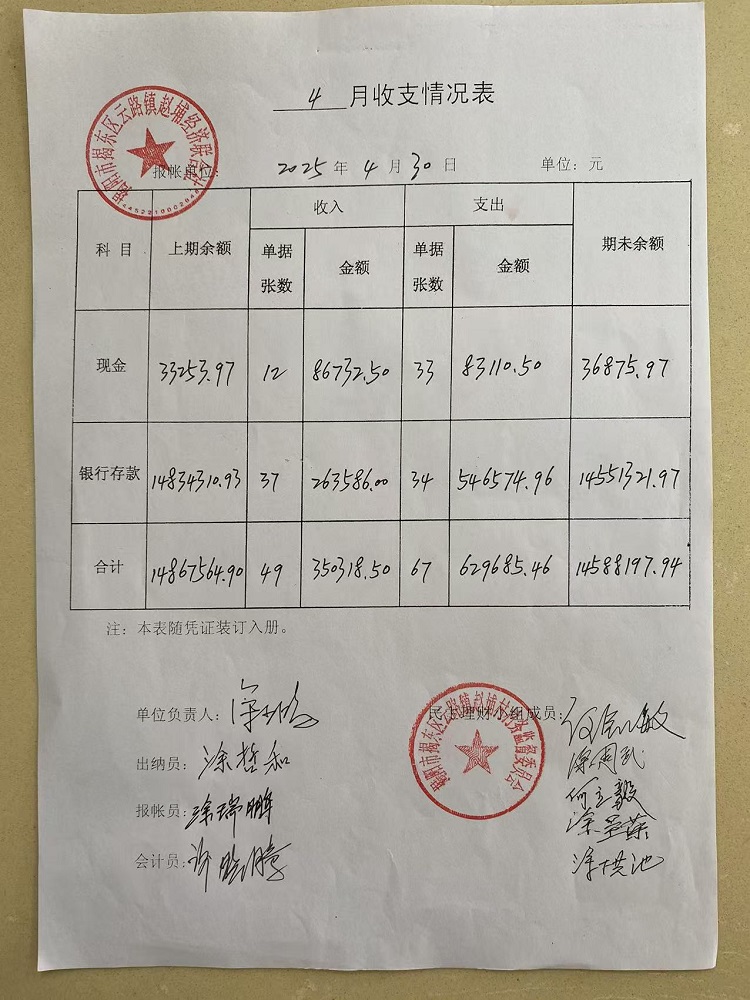 4 月收支情况表
揭阳市揭东区云路镇赵埔经济联合社
报帐单位：
2025 年 4 月 30 日 单位：元
科目 上期余额 收入 支出 期未余额
单据张数 金额 单据张数 金额
现金 33253.97 12 86732.50 33 83110.50 36875.97
银行存款 14834310.93 37 263586.00 34 546574.96 14551321.97
合计 14867564.90 49 350318.50 67 629685.46 14588197.94
注：本表随凭证装订入册。
单位负责人：
民主理财小组成员：
揭阳市揭东区云路镇赵埔村村务监督委员会
出纳员：涂哲和
涂周武
报帐员：涂瑞鹏
何立毅
会计员：
涂洪池